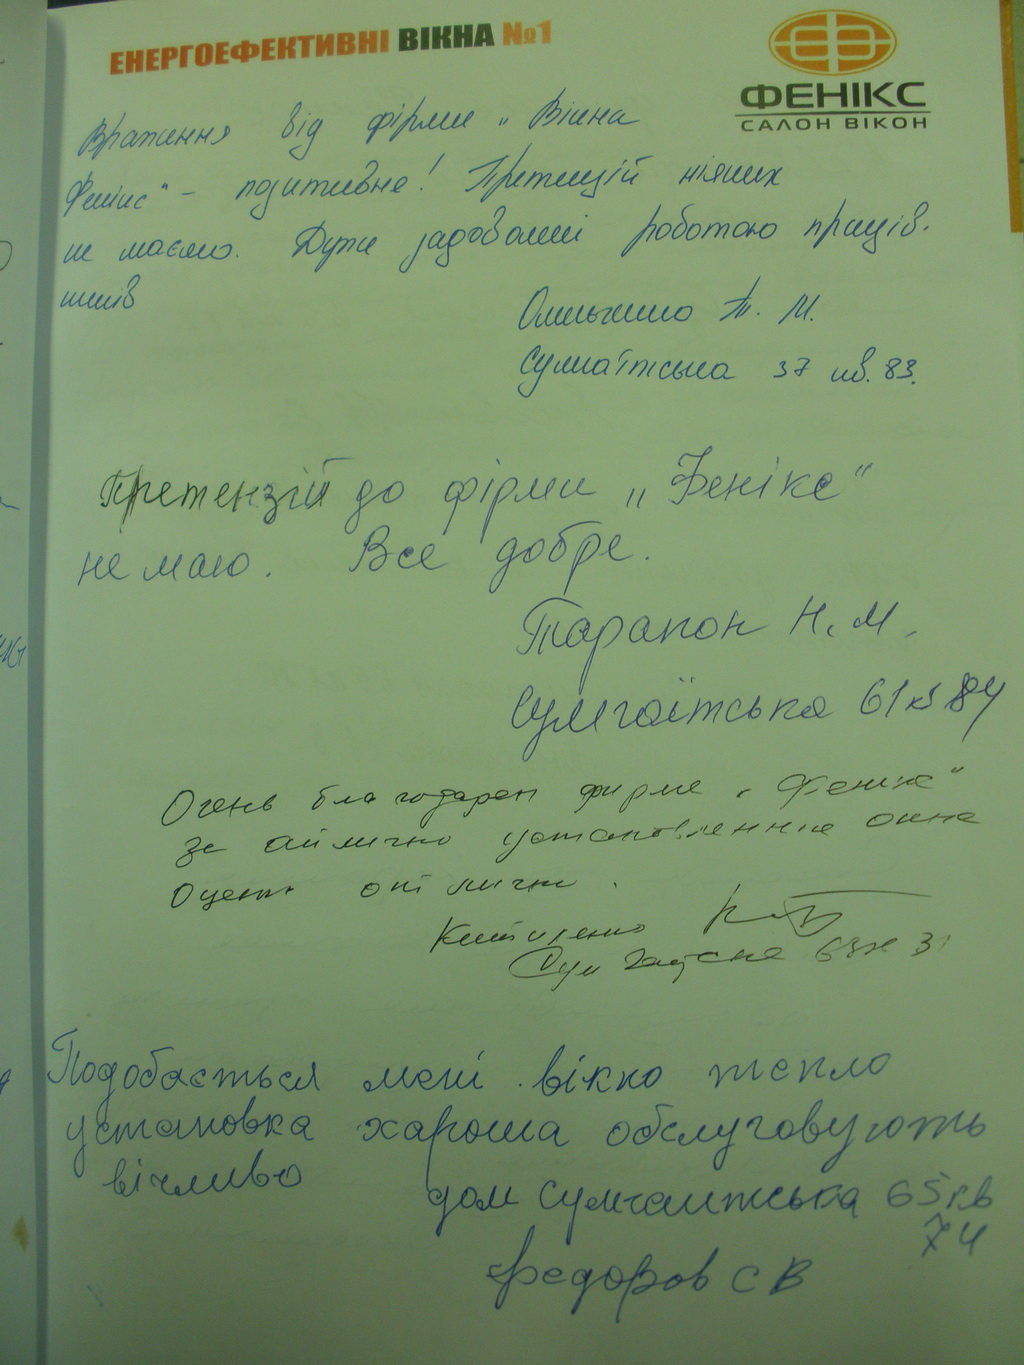 ЕНЕРГОЕФЕКТИВНІ ВІКНА №1
ФЕНІКС
САЛОН ВІКОН
Враження від фірми „Вікна
Фенікс" – позитивне! Претензій ніяких
не маємо. Дуже задоволені роботою праців-
ників
Т. М.
Сумгаїтська 37 кв. 83.
Претензій до фірми „Фенікс"
не маю. Все добре.
Тарапон Н. М.
Сумгаїтська 61 кв 84
Очень благодарен фирме „Феникс"
за отлично установленные окна
Оценка отлично.
Сумгаитская
Подобається мені вікно тепло
установка хароша обслуговують
вічливо
дом Сумгаитська 65 кв
74
Федоров С В